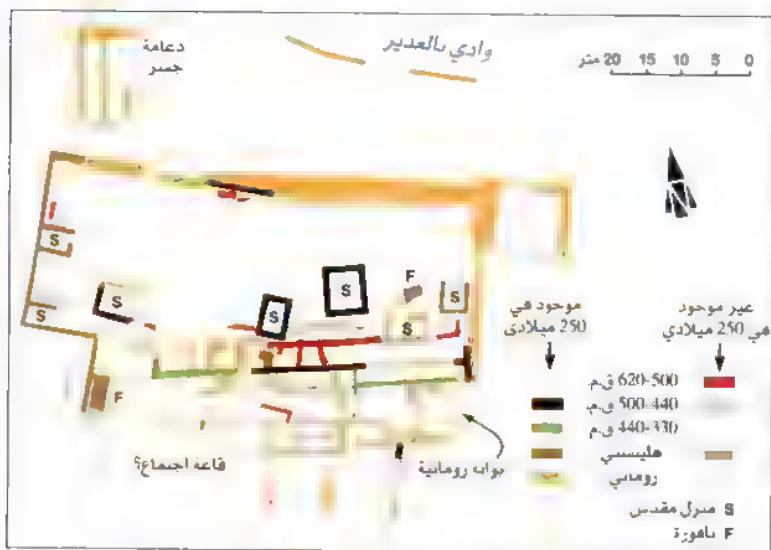 دعامة
جسر
وادي بالغدير
0 5 10 15 20 متر
S
S
S
S
S
S
F
S
S
F
موجود في
250 ميلادي
غير موجود
في 250 ميلادي
620-500 ق.م.
500-440 ق.م.
440-330 ق.م.
هلينستي
روماني
S منزل مقدس
F نافورة
قاعة اجتماع؟
بوابة رومانية